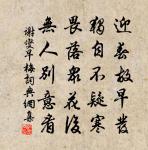 迎春故早發
獨自不疑寒
畏落眾花後
無人別意看
謝燮早梅詞典網集